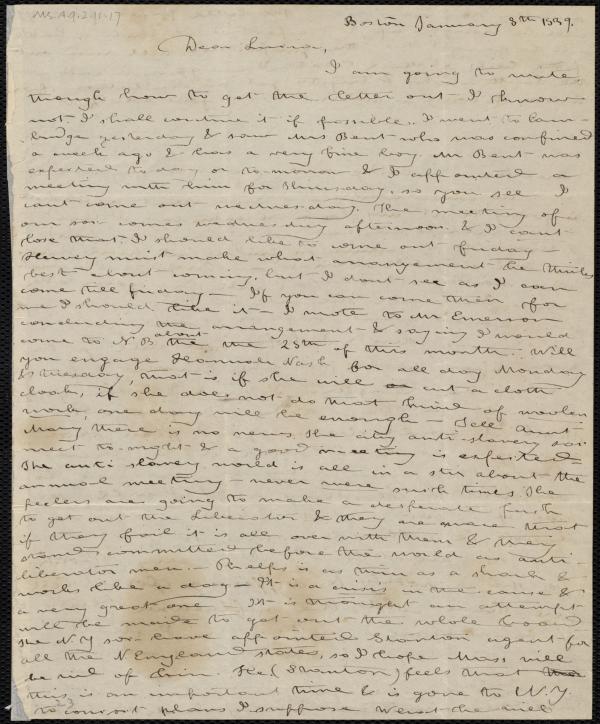 Ms. A.9.2.11-17
Boston January 8th 1839.
Dear Lucia,
I am going to write
though how to get the letter out I know
not I shall continue it if possible. I went to Cam-
bridge yesterday & saw Mrs Bent who was confined
a week ago & has a very fine boy. Mr Bent was
expected to day or to-morrow & I appointed a
meeting with him for Thursday, so you see I
cant come out wednesday. The meeting of
our soc. comes wednesday afternoon & I cant
lose that I should like to come out friday
Hervey must make what arrangement he thinks
best about coming, but I dont see as I can
come till friday — If you can come then for
me I should like it — I wrote to Mr Emerson
concluding the arrangement & saying I would
come to N B about the 28th of this month. Will
you engage Hannah Nash for all day Monday
& tuesday, that is if she will cut a cloth
cloak, if she does not do that kind of woolen
work, one day will be enough — Tell Aunt
Mary there is no news, the city anti-slavery soc.
meet to-night & a good meeting is expected —
The anti slavery world is all in a stir about the
annual meeting — never were such times. The
feelers are going to make a desperate push
to get out the Liberator & they are aware that
if they fail it is all over with them & they
stand committed before the world as anti-
liberator men. — Phelps is as thin as a shark &
works like a dog — It is a crisis in the cause &
a very great one It is thought an attempt
will be made to get out the whole board
The N.Y soc. have appointed Stanton agent for
all the N England states, so I hope Mass will
be rid of him He (Stanton) feels that
this is an important time & is gone to N.Y.
to concert plans I suppose. Weist he will